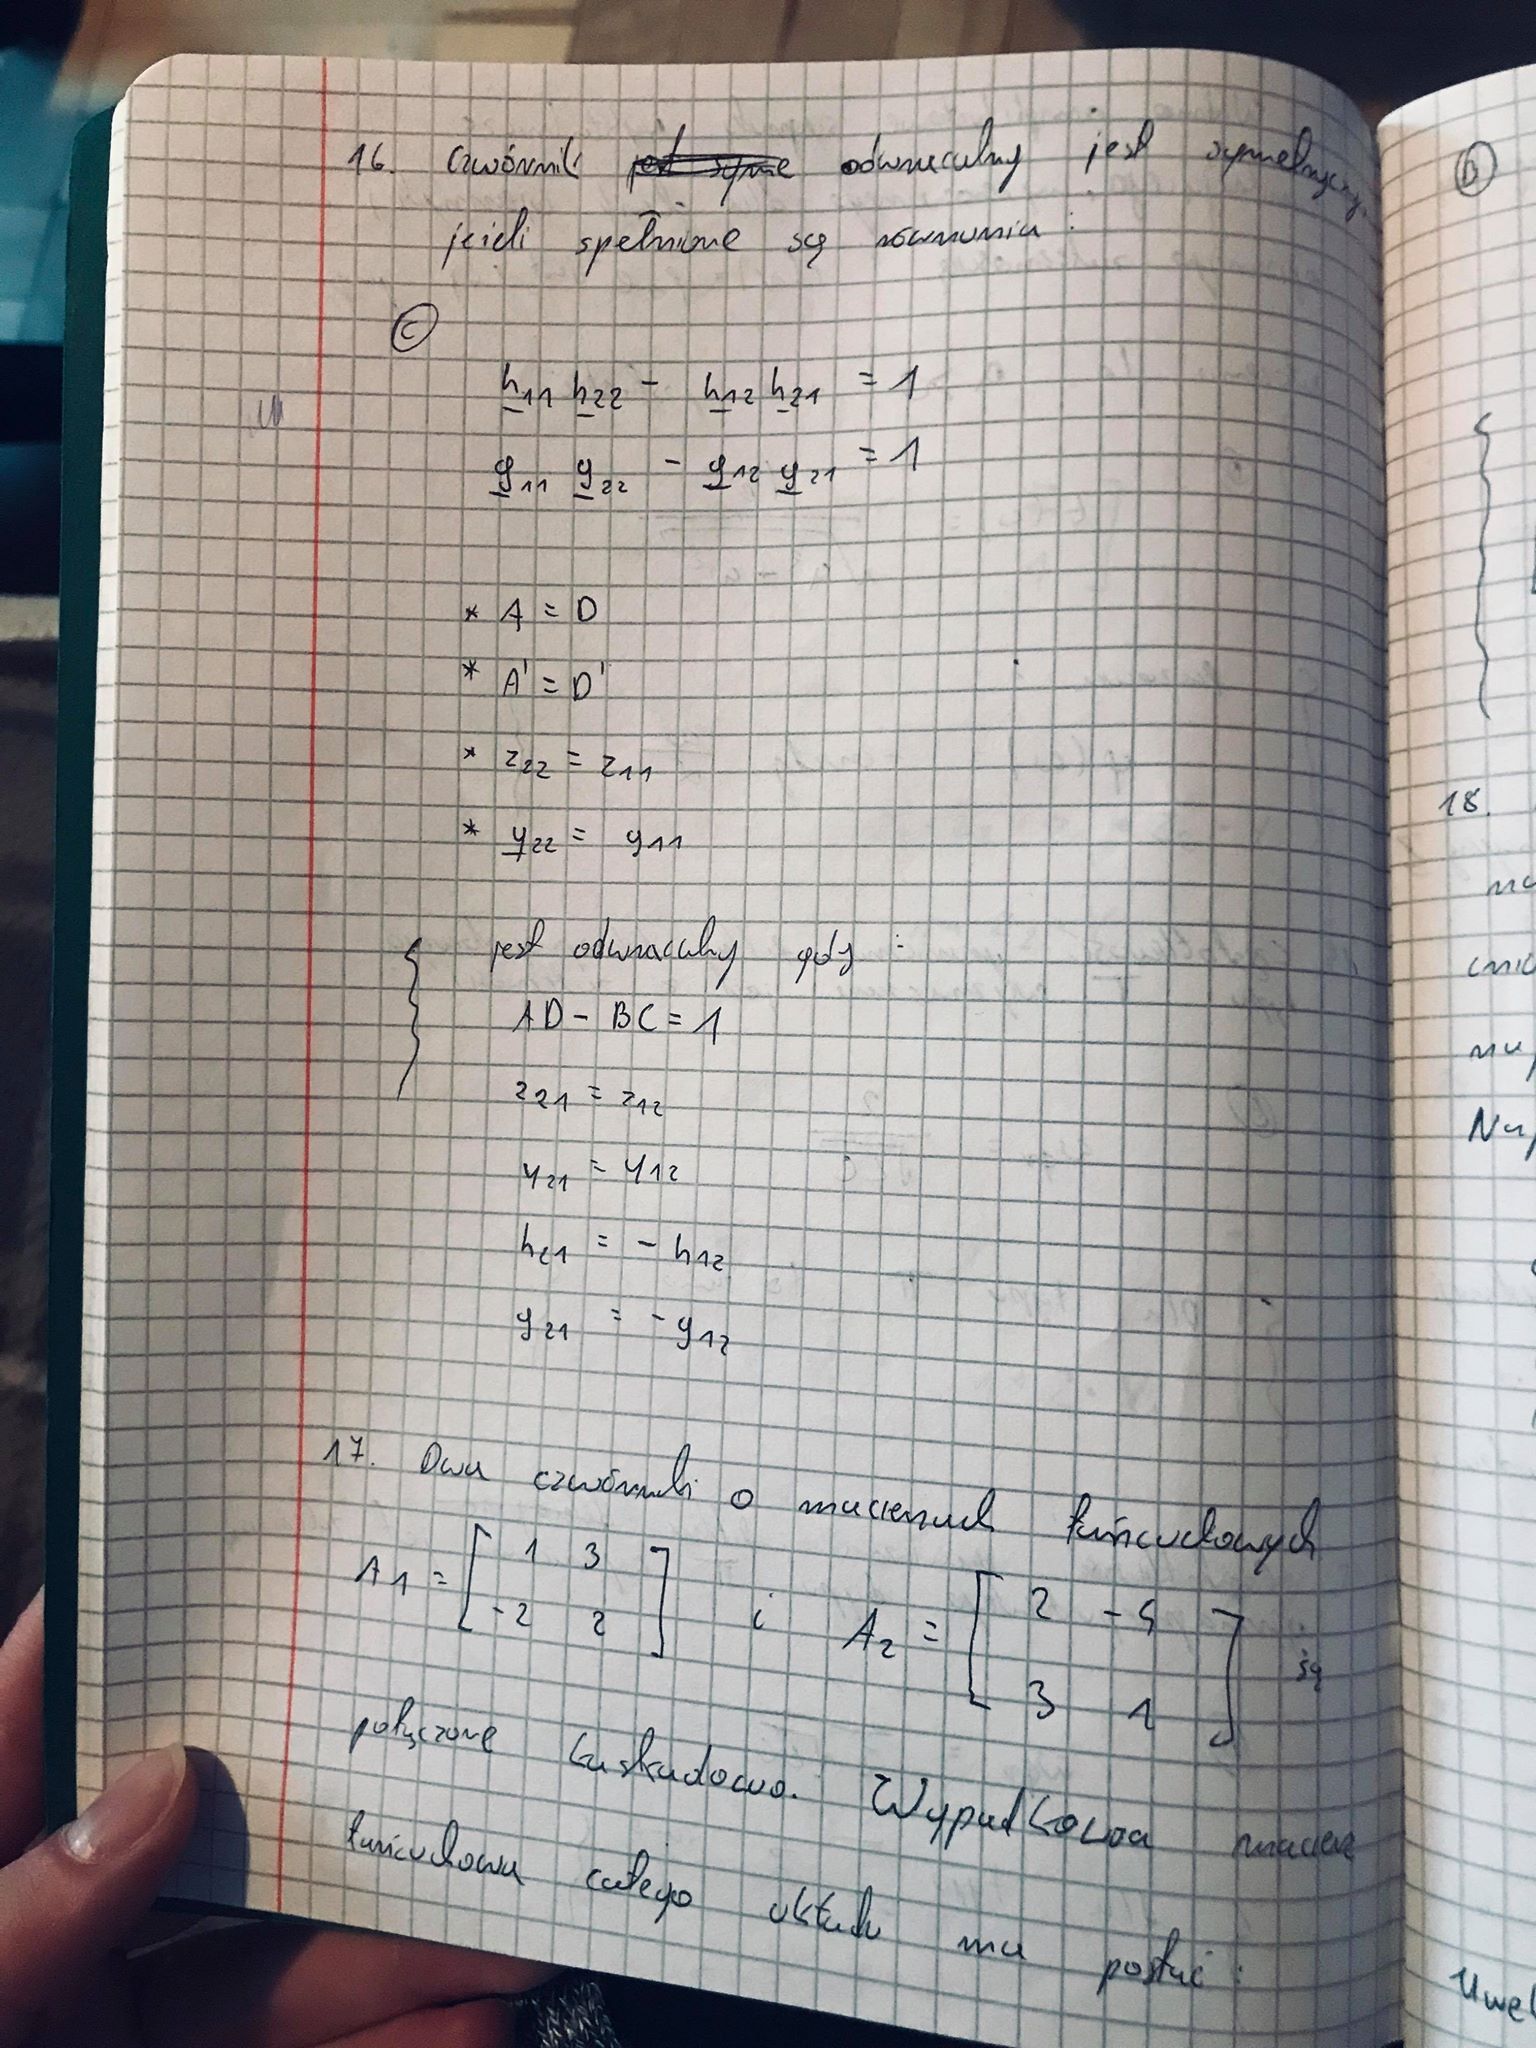 16. Czwórnik jest syme odwracalny jest symetryczny,
jeżeli spełnione są równania:
c
h11 h22 - h12 h21 = 1
g11 g22 - g12 g21 = 1
* A = D
* A' = D'
* z22 = z11
* y22 = y11
jest odwracalny gdy :
AD - BC = 1
z21 = z12
y21 = y12
h21 = - h12
g21 = - g12
17. Dwa czwórniki o macierzach łańcuchowych
A1 = [ 1 3
-2 2 ] i A2 = [ 2 -4
3 1 ] są
połączone kaskadowo. Wypadkowa macierz
łańcuchowa całego układu ma postać :
b
18.
Uwe